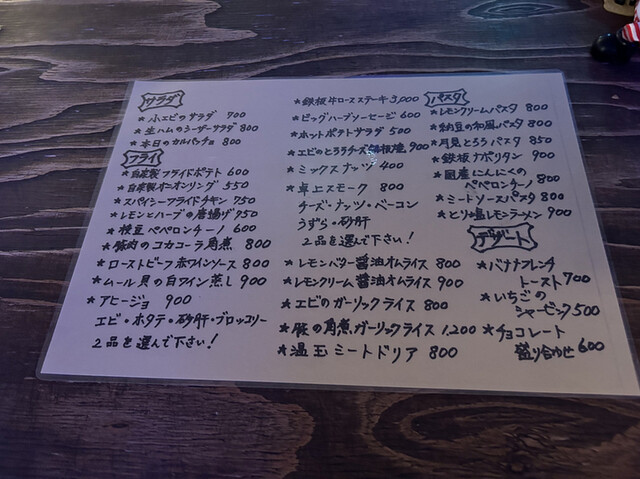 サラダ
★小エビのサラダ 700
★生ハムのシーザーサラダ 800
★本日のカルパッチョ 800
フライ
★自家製フライドポテト 600
★自家製オニオンリング 550
★スパイシーフライドチキン 750
★レモンとハーブの唐揚げ 750
★枝豆ペペロンチーノ 600
★豚肉のコカコーラ角煮 800
★ローストビーフ赤ワインソース 800
★ムール貝の白ワイン蒸し 900
★アヒージョ 900
エビ・ホタテ・砂肝・ブロッコリー
2品を選んで下さい!
★鉄板牛ロースステーキ 3,000
★ビッグハーブソーセージ 600
★ホットポテトサラダ 500
★エビのとろろチーズ鉄板焼 900
★ミックスナッツ 400
★卓上スモーク 800
チーズ・ナッツ・ベーコン
うずら・砂肝
2品を選んで下さい!
★レモンバター醤油オムライス 800
★レモンクリーム醤油オムライス 900
★エビのガーリックライス 800
★豚の角煮ガーリックライス 1,200
★温玉ミートドリア 800
パスタ
★レモンクリームパスタ 800
★納豆の和風パスタ 800
★月見とろろパスタ 850
★鉄板ナポリタン 900
★国産にんにくの
ペペロンチーノ 800
★ミートソースパスタ 800
★とり塩レモンラーメン 900
デザート
★バナナフレンチ
トースト 700
★いちごの
シャーベット 500
★チョコレート
盛り合わせ 600